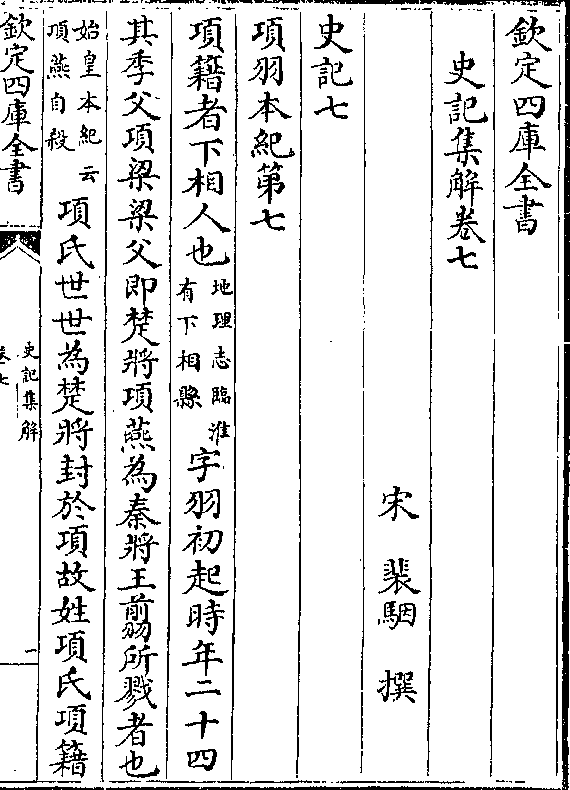 欽定四庫全書
史記集解卷七
宋 裴駰 撰
史記七
項羽本紀第七
項籍者下相人也地理志臨淮有下相縣字羽初起時年二十四
其季父項梁梁父即楚將項燕為秦將王翦所戮者也
始皇本紀云項燕自殺項氏世世為楚將封於項故姓項氏項籍
欽定四庫全書
史記集解
卷七
一